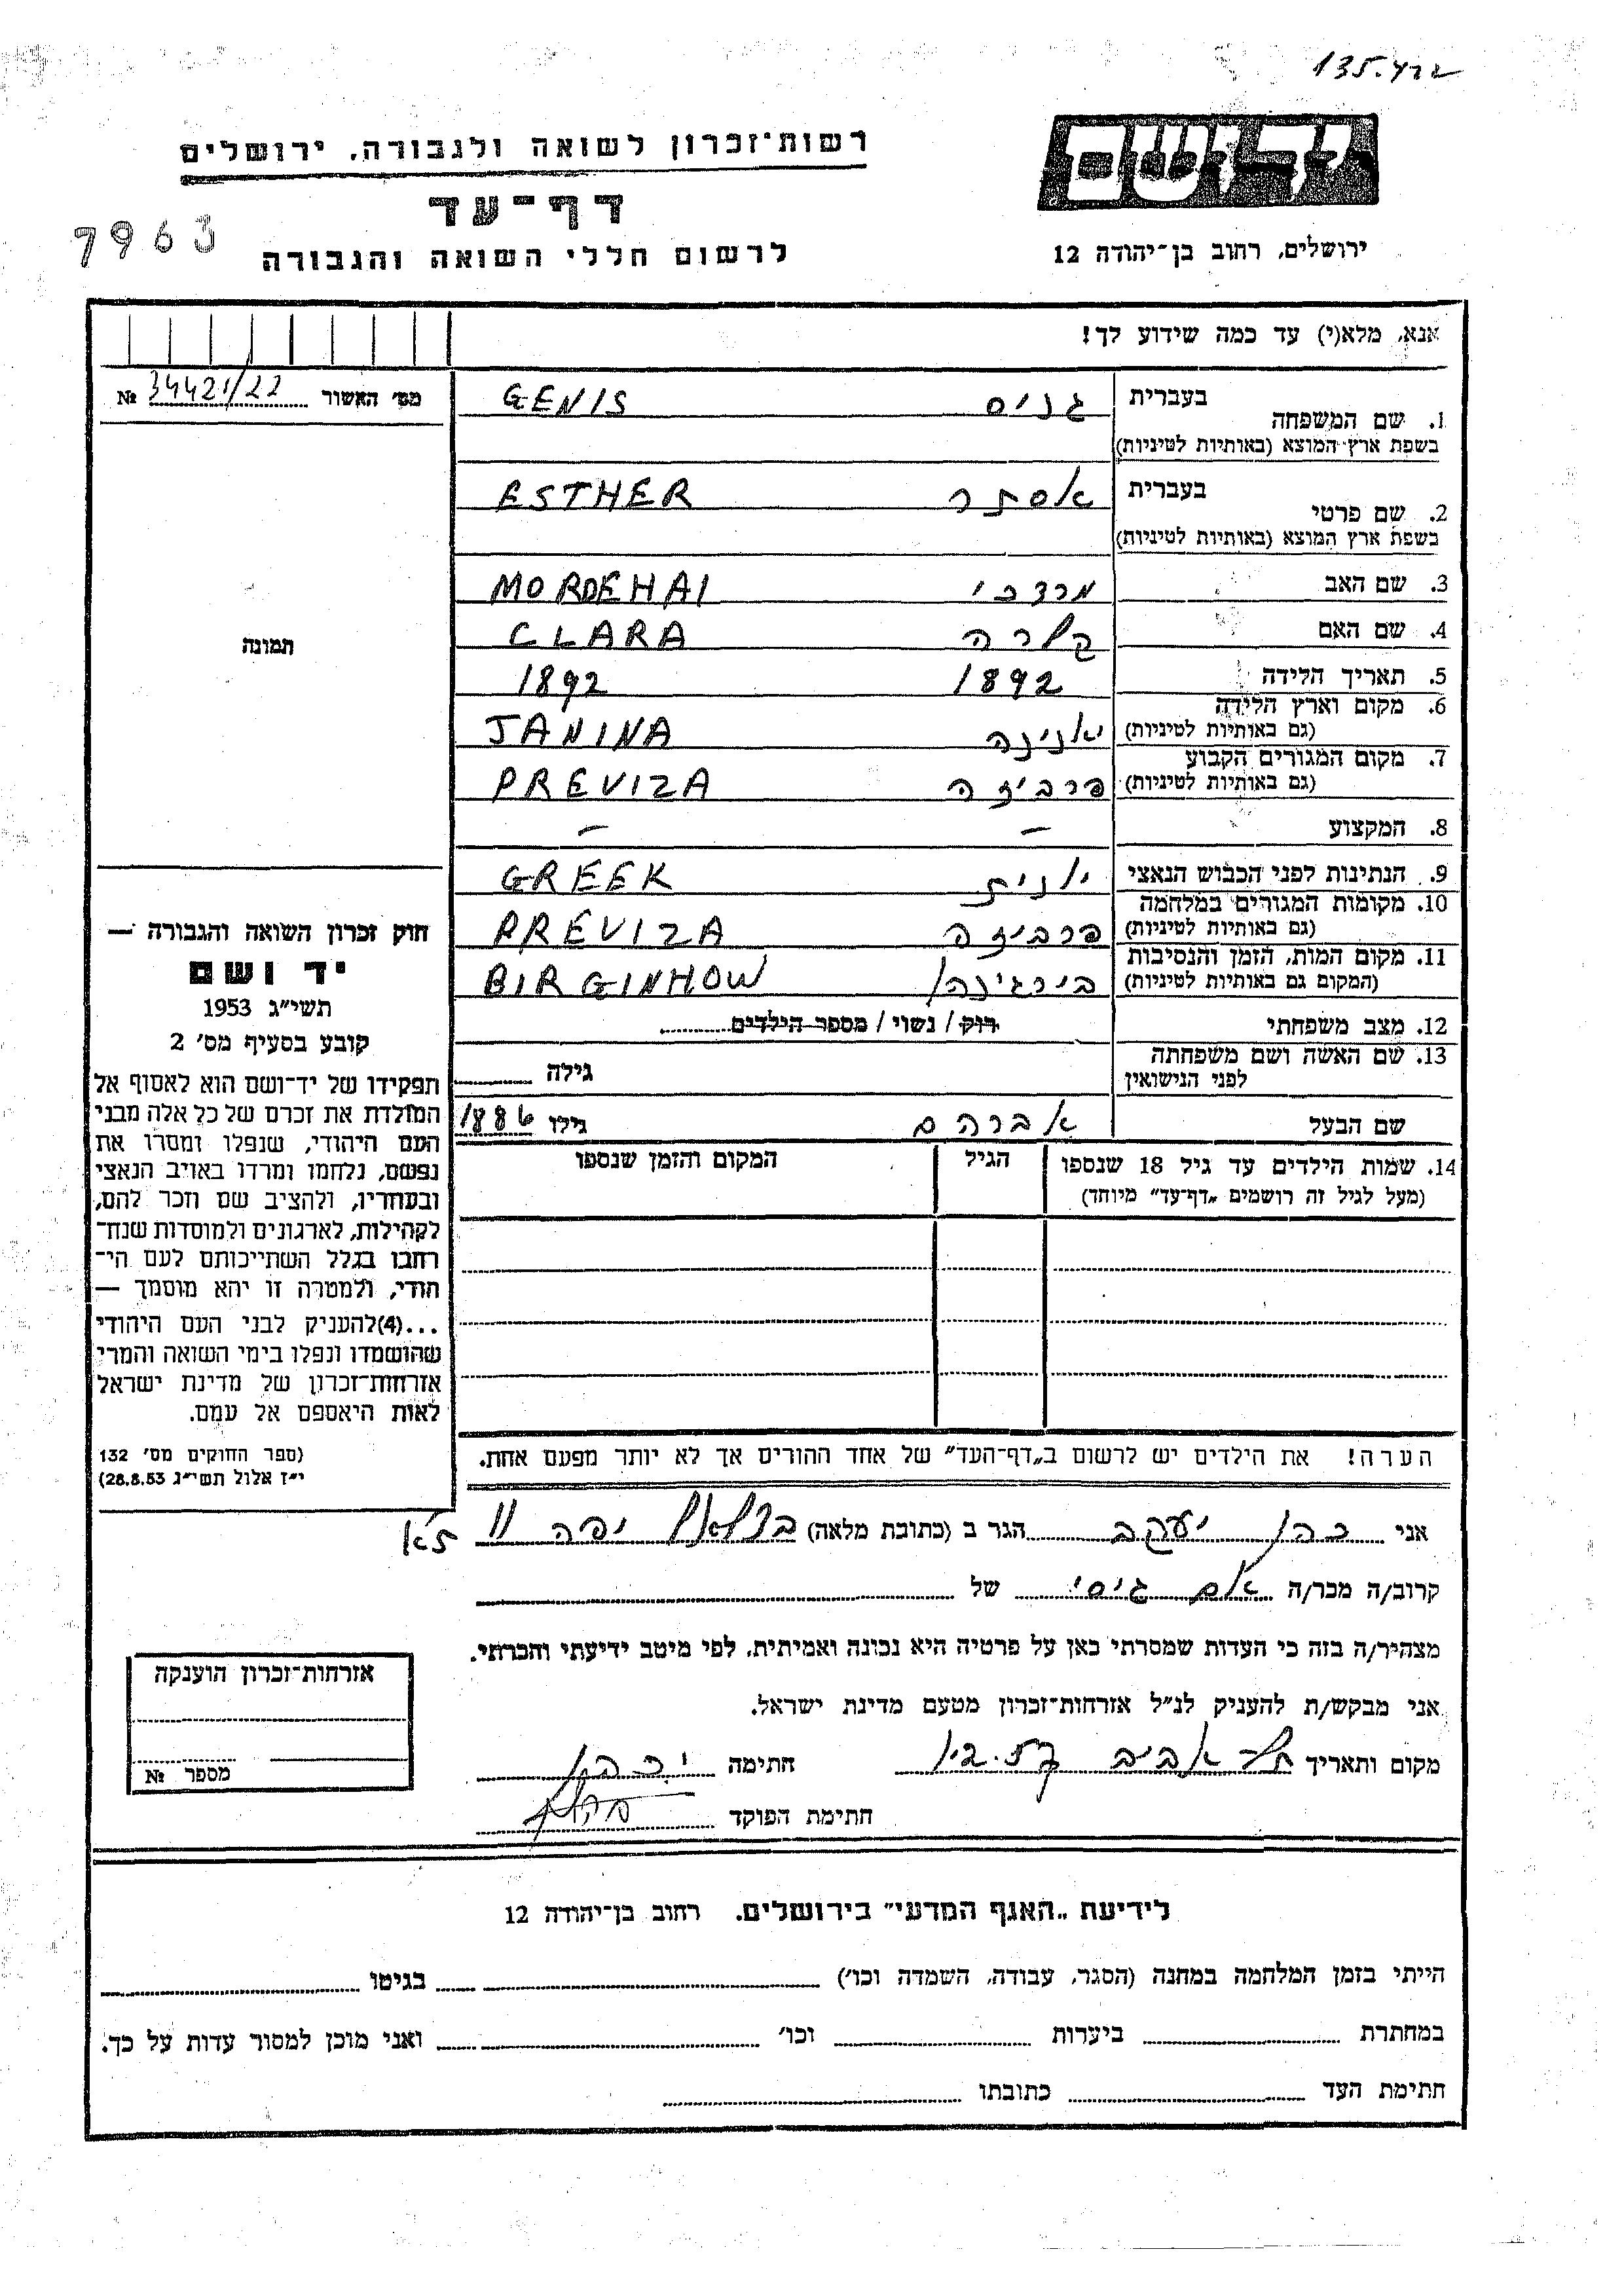 135.422
יד ושם
רשות־זכרון לשואה ולגבורה, ירושלים
דף־עד
7963
לרשום חללי השואה והגבורה
ירושלים, רחוב בן־יהודה 12
אנא, מלא(י) עד כמה שידוע לך!
מס׳ האשור 34421/22 №
1. שם המשפחה בעברית גניס GENIS
בשפת ארץ־המוצא (באותיות לטיניות)
2. שם פרטי בעברית אסתר ESTHER
בשפת ארץ המוצא (באותיות לטיניות)
3. שם האב מרדכי MORDEHAI
4. שם האם קלרה CLARA
5. תאריך הלידה 1892 1892
6. מקום וארץ הלידה יאנינה JANINA
(גם באותיות לטיניות)
7. מקום המגורים הקבוע פרביזה PREVIZA
(גם באותיות לטיניות)
8. המקצוע – –
9. הנתינות לפני הכבוש הנאצי יונית GREEK
10. מקומות המגורים במלחמה פרביזה PREVIZA
(גם באותיות לטיניות)
11. מקום המות, הזמן והנסיבות בירגינהו BIRGINHOW
(המקום גם באותיות לטיניות)
12. מצב משפחתי רוק / נשוי / מספר הילדים
13. שם האשה ושם משפחתה גילה
לפני הנישואין
שם הבעל אברהם גילו 1886
14. שמות הילדים עד גיל 18 שנספו הגיל המקום והזמן שנספו
(מעל לגיל זה רושמים „דף־עד” מיוחד)
תמונה
חוק זכרון השואה והגבורה —
יד ושם
תשי״ג 1953
קובע בסעיף מס׳ 2
תפקידו של יד־ושם הוא לאסוף אל
המולדת את זכרם של כל אלה מבני
העם היהודי, שנפלו ומסרו את
נפשם, נלחמו ומרדו באויב הנאצי
ובעוזריו, ולהציב שם וזכר להם,
לקהילות, לארגונים ולמוסדות שנח־
רחבו בגלל השתייכותם לעם הי־
הודי, ולמטרה זו יהא מוסמך —
...(4)להעניק לבני העם היהודי
שהושמדו ונפלו בימי השואה והמרי
אזרחות־זכרון של מדינת ישראל
לאות היאספם אל עמם.
(ספר החוקים מס׳ 132
י״ז אלול תשי״ג 28.8.53)
הערה! את הילדים יש לרשום ב„דף־העד” של אחד ההורים אך לא יותר מפעם אחת.
אני כהן יעקב הגר ב (כתובת מלאה) יפה 11
קרוב/ה מכר/ה גיסי של
מצהיר/ה בזה כי העדות שמסרתי כאן על פרטיה היא נכונה ואמיתית, לפי מיטב ידיעתי והכרתי.
אני מבקש/ת להעניק לנ״ל אזרחות־זכרון מטעם מדינת ישראל.
מקום ותאריך תל אביב חתימה י. כהן
חתימת הפוקד
אזרחות־זכרון הוענקה
מספר №
לידיעת „האגף המדעי” בירושלים. רחוב בן־יהודה 12
הייתי בזמן המלחמה במחנה (הסגר, עבודה, השמדה וכו׳) בגיטו
במחתרת ביערות וכו׳ ואני מוכן למסור עדות על כך.
חתימת העד כתובתו